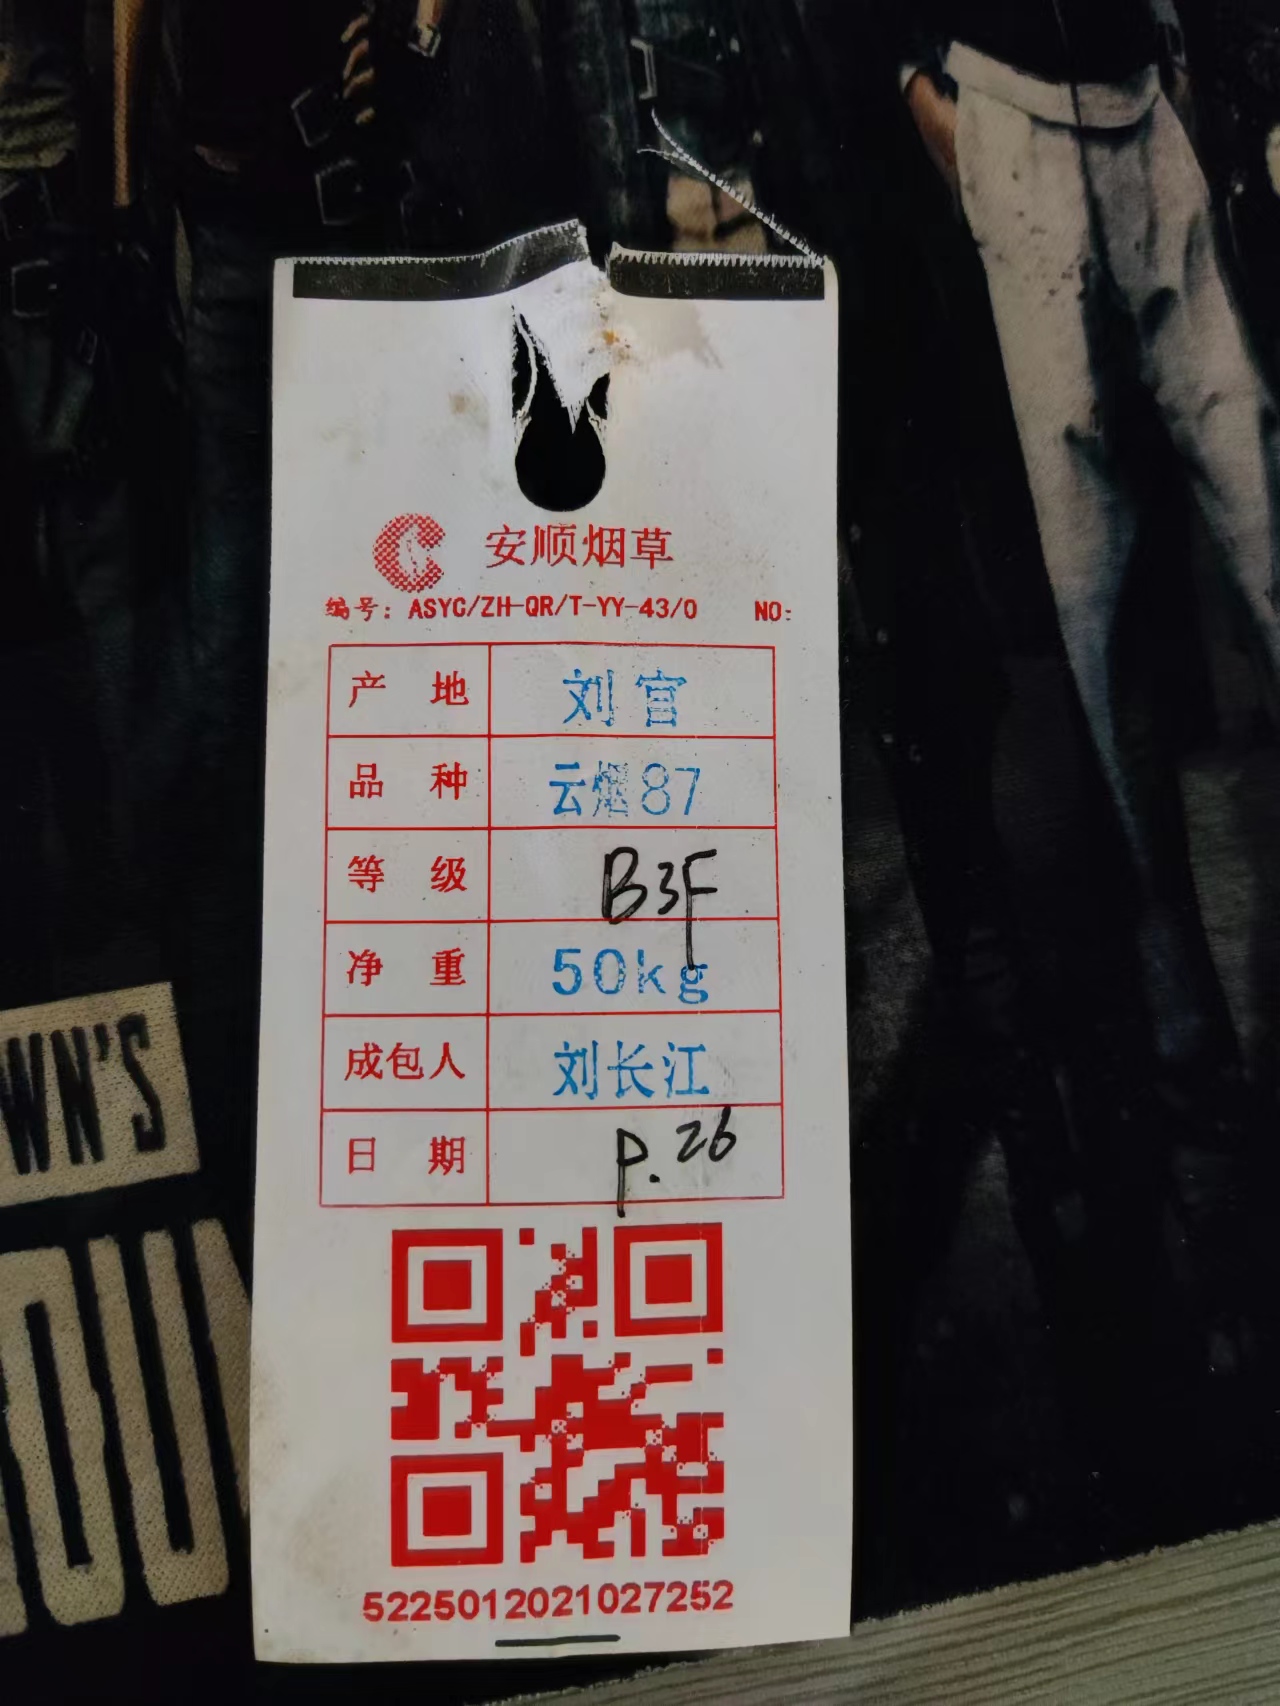 安顺烟草
编号: ASYC/ZH-QR/T-YY-43/0 NO:
产地 刘官
品种 云烟87
等级 B3F
净重 50kg
成包人 刘长江
日期 P.26
5225012021027252
WN'S